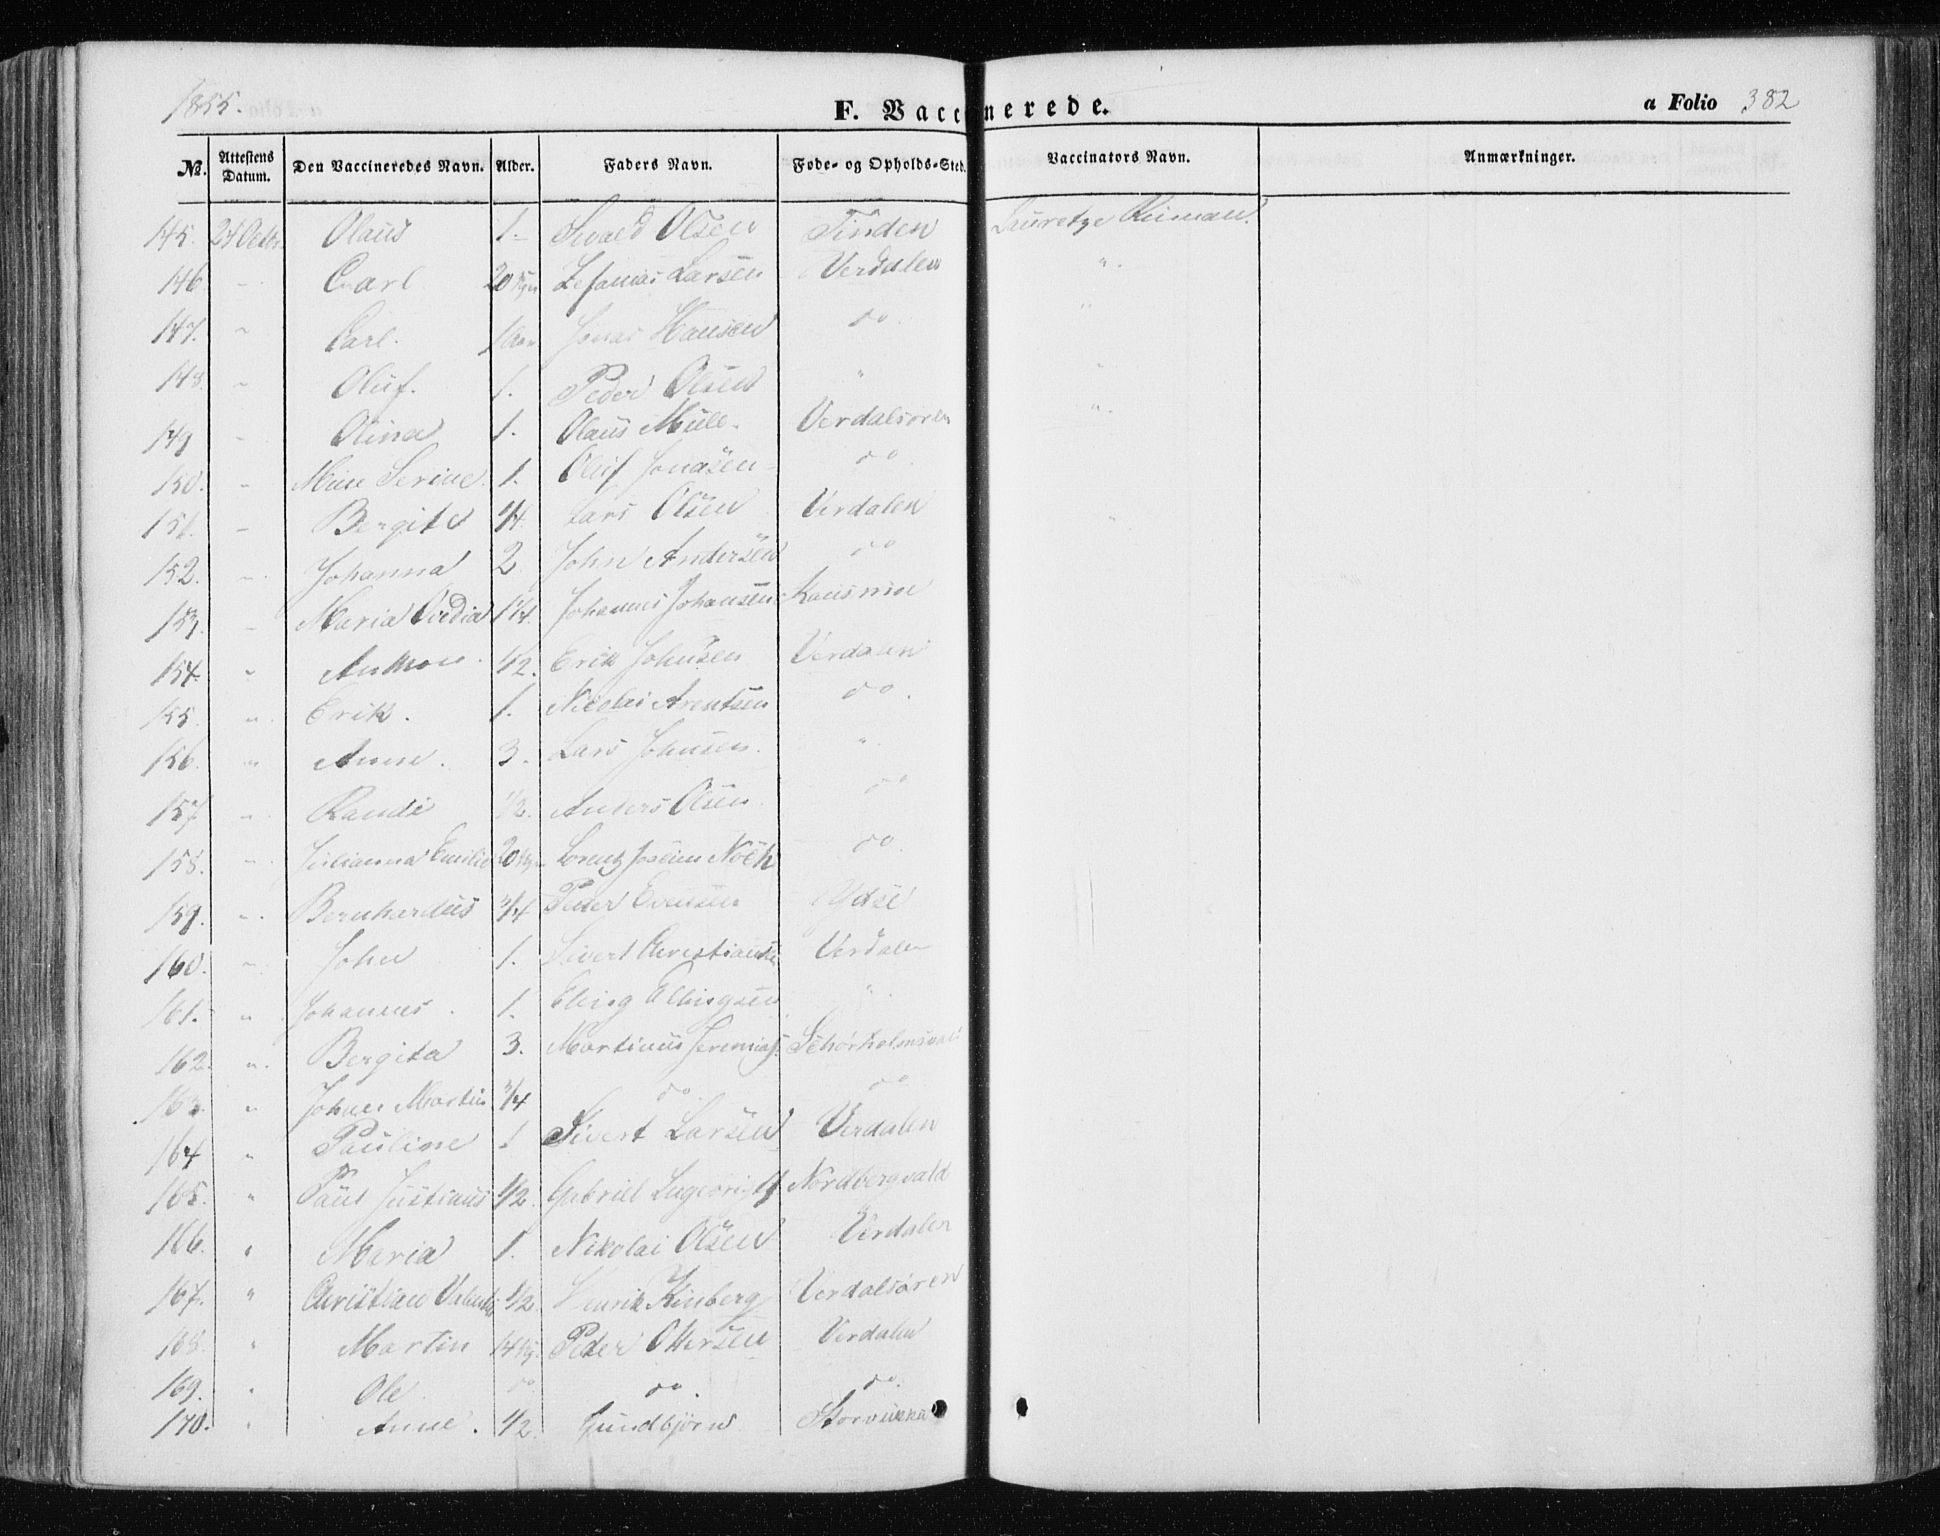 1855.
F. Vaccinerede.
a Folio 382
No. Attestens Datum. Den Vaccineredes Navn. Alder. Faders Navn. Føde- og Opholds-Sted. Vaccinators Navn. Anmærkninger.
145. 24 Octbr Olaus 1. Sivald Olsen Tinden
146 " Carl 20 Larsen Verdalen "
147. " Carl. Jonas Hansen do. "
148. " Oluf. 1. Peder Olsen " "
149 " Olina 1. Olaus Mule. Verdalsøren "
150. " Serine. 1. Oluf Jonasen do.
151. " Bergite Lars Olsen Verdalen "
152. " Johanna 2 John Andersen do "
153. " Maria 1 1/4. Johannes Johansen
154. " Anthon 1/2. Erik Johnsen Verdalen
155. " Erik. 1. Nicolai Arentsen do.
156. " Anne. 3. Lars Johnsen. "
157 " Randi 1/2. Anders Olsen. do
158. " Julianna Emilie 20 Lorentz Nøch do.
159. " Bernhardus 3/4 Peder Evensen Ydse
160. " John 1. Sivert Christiansen Verdalen
161. " Johannes. 1. Elling Ellingsen "
162. " Bergita 3. Martinus Jeremias.
163. " Johan Martin 3/4 do. do
164 " Pauline 1 Sivert Larsen Verdalen
165. " Paul Justinus 1/2. Gabriel Nordbergvald
166. " Maria 1. Nikolai Olsen Verdalen
167. " Christian 1/2. Henrik Kinberg Verdalsøren
168. " Martin 14 Peder Ottersen Verdalen
169. " Ole. do do. do.
170. " Anne. 1/2. Gundbjørn